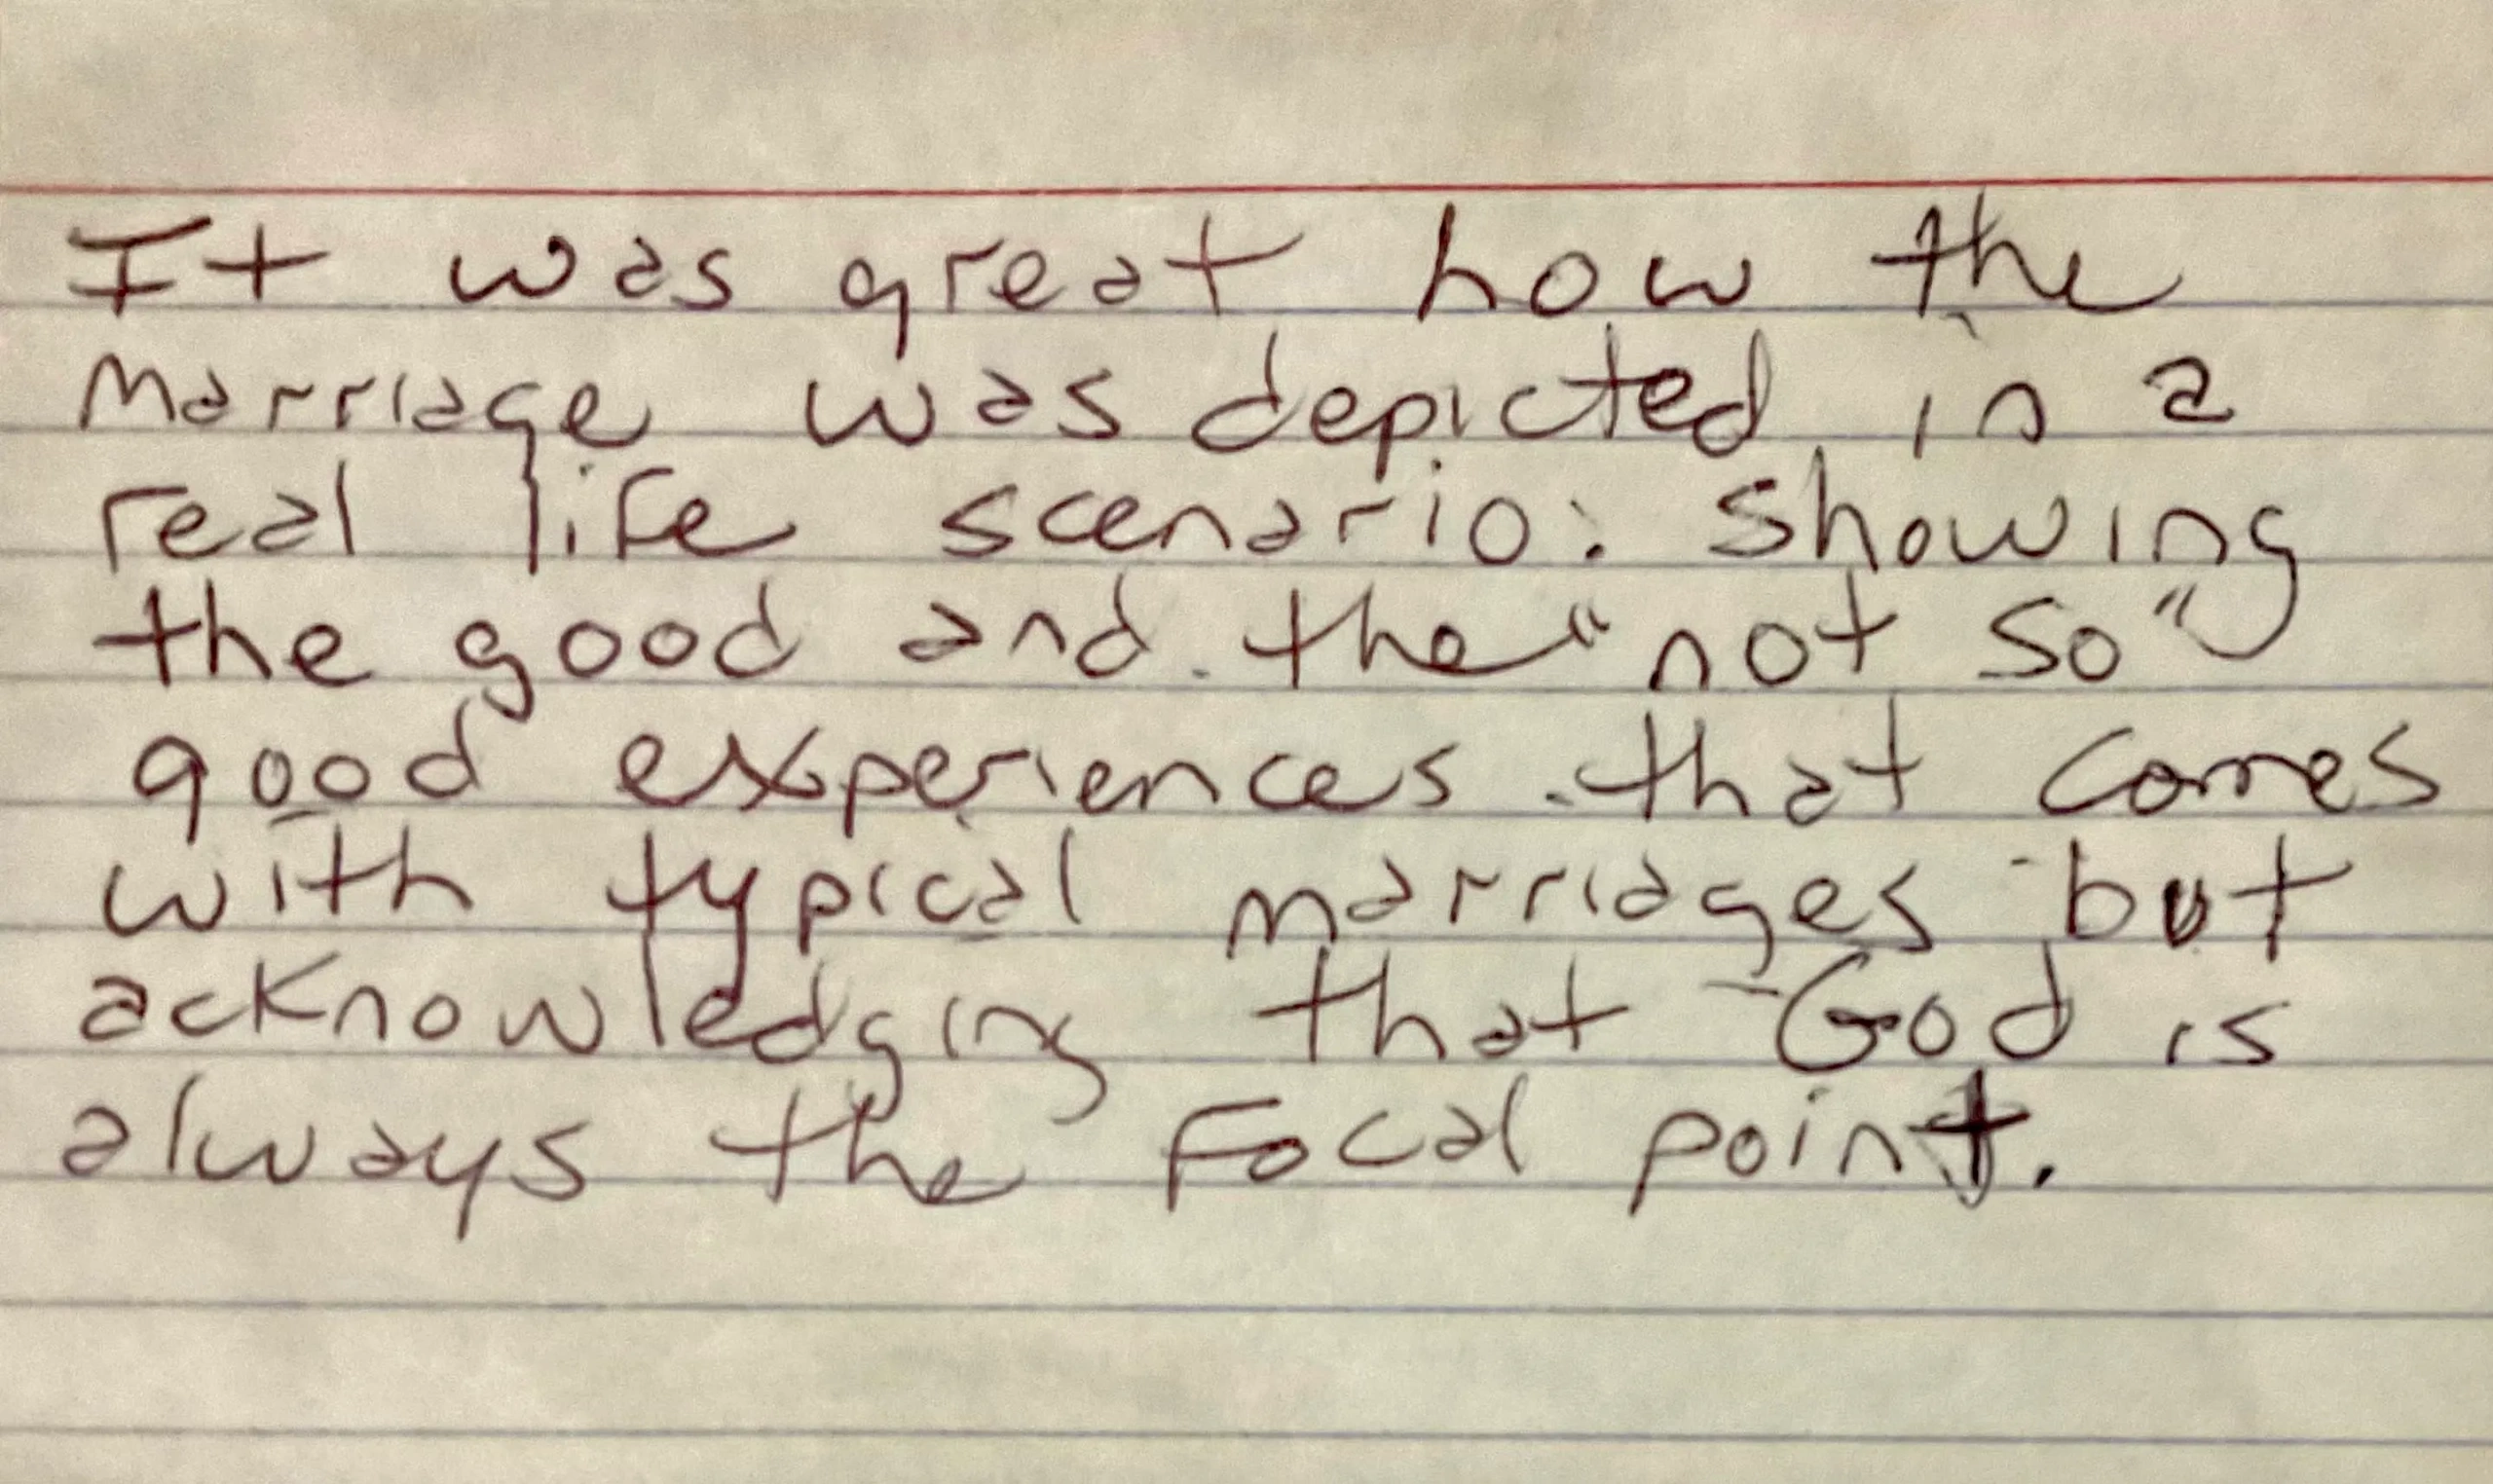 It was great how the
marriage was depicted in a
real life scenario: showing
the good and the "not so"
good experiences that comes
with typical marriages but
acknowledging that God is
always the focal point.